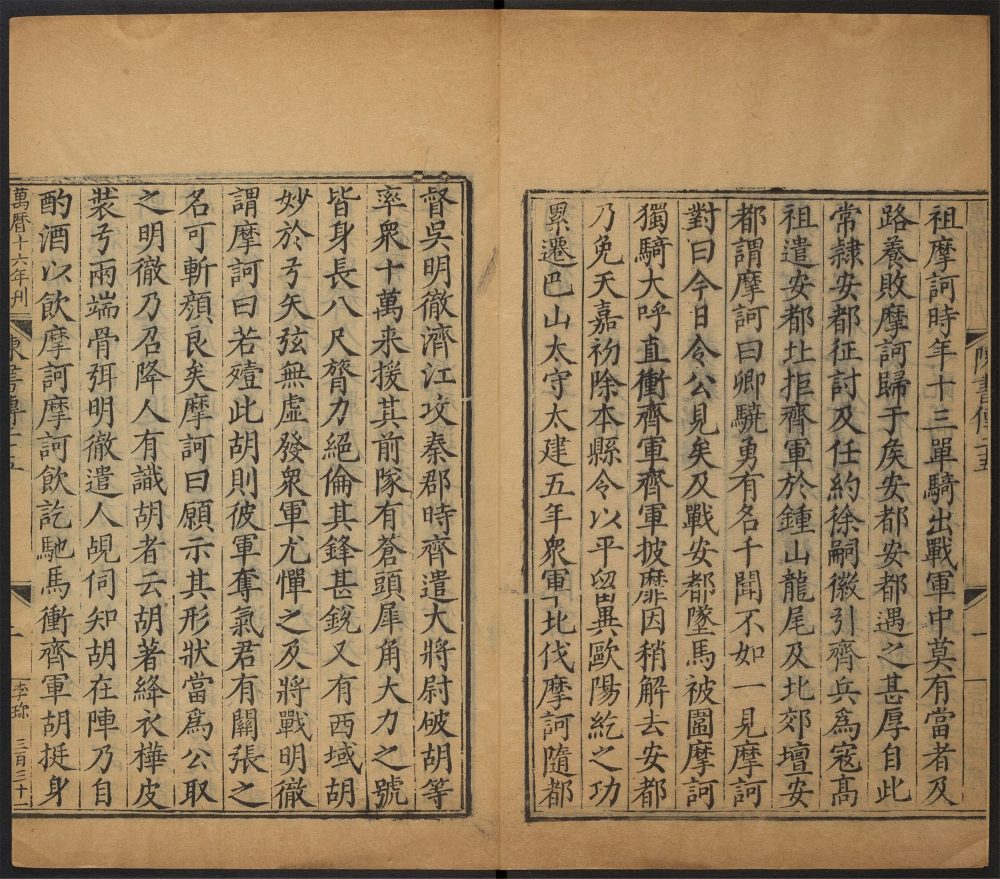 祖摩訶時年十三單騎出戰軍中莫有當者及
路養敗摩訶歸于侯安都安都遇之甚厚自此
常隷安都征討及任約徐嗣徽引齊兵爲寇高
祖遣安都北拒齊軍於鍾山龍尾及北郊壇安
都謂摩訶曰卿驍勇有名千聞不如一見摩訶
對曰今日令公見矣及戰安都墜馬被圍摩訶
獨騎大呼直衝齊軍齊軍披靡因稍解去安都
乃免天嘉初除本縣令以平留異歐陽紇之功
累遷巴山太守太建五年衆軍北伐摩訶隨都
督吳明徹濟江攻秦郡時齊遣大將尉破胡等
率衆十萬来援其前隊有蒼頭犀角大力之號
皆身長八尺膂力絕倫其鋒甚銳又有西域胡
妙於弓矢弦無虛發衆軍尤憚之及將戰明徹
謂摩訶曰若殪此胡則彼軍奪氣君有關張之
名可斬顔良矣摩訶曰願示其形狀當爲公取
之明徹乃召降人有識胡者云胡著絳衣樺皮
裝弓兩端骨弭明徹遣人覘伺知胡在陣乃自
酌酒以飲摩訶摩訶飲訖馳馬衝齊軍胡挺身
萬曆十六年刊 陳書傳二十五 一 李珎 三百三十一